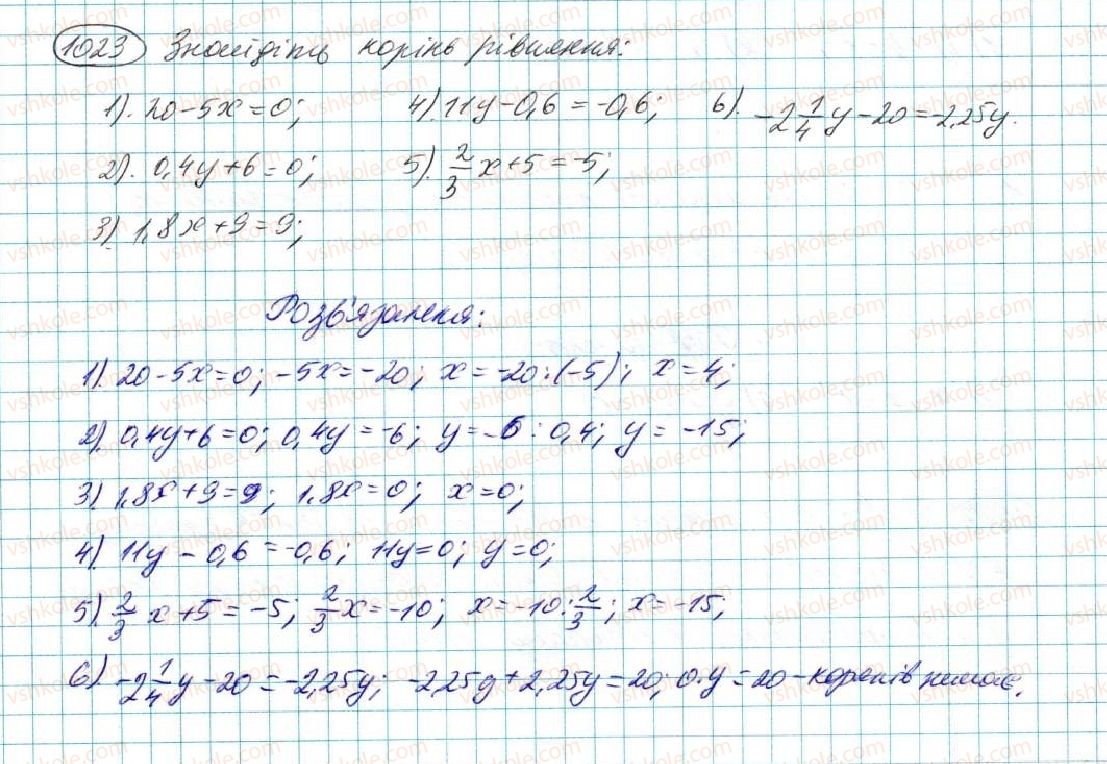 1023 Знайдіть корінь рівняння:
1). 20-5x=0; 4). 11y-0,6=-0,6; 6). -2 1/4 y-20=-2,25y.
2). 0,4y+6=0; 5). 2/3 x+5=-5;
3) 1,8x+9=9;
Розв'язання:
1). 20-5x=0; -5x=-20; x=-20:(-5); x=4;
2). 0,4y+6=0; 0,4y=-6; y=-6:0,4; y=-15;
3) 1,8x+9=9; 1,8x=0; x=0;
4) 11y-0,6=-0,6; 11y=0; y=0;
5) 2/3 x+5=-5; 2/3 x=-10; x=-10:2/3; x=-15;
6) -2 1/4 y-20=-2,25y; -2,25y+2,25y=20; 0·y=20 - коренів немає.